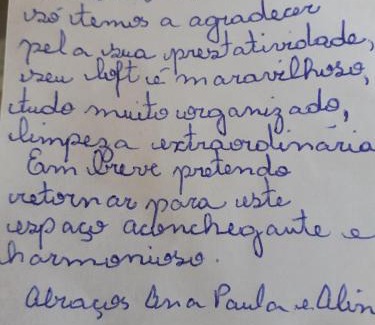 só temos a agradecer
pela sua prestatividade,
seu loft é maravilhoso,
tudo muito organizado,
limpeza extraordinária
Em breve pretendo
retornar para este
espaço aconchegante e
harmonioso.
Abraços Ana Paula e Alin